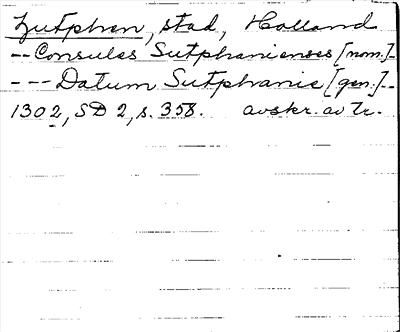 Zutphen, stad, Holland
-- Consules Sutphanienses [nom.] -
--- Datum Sutphanie [gen.] --
1302, SD 2, s. 358. avskr. av Tr.